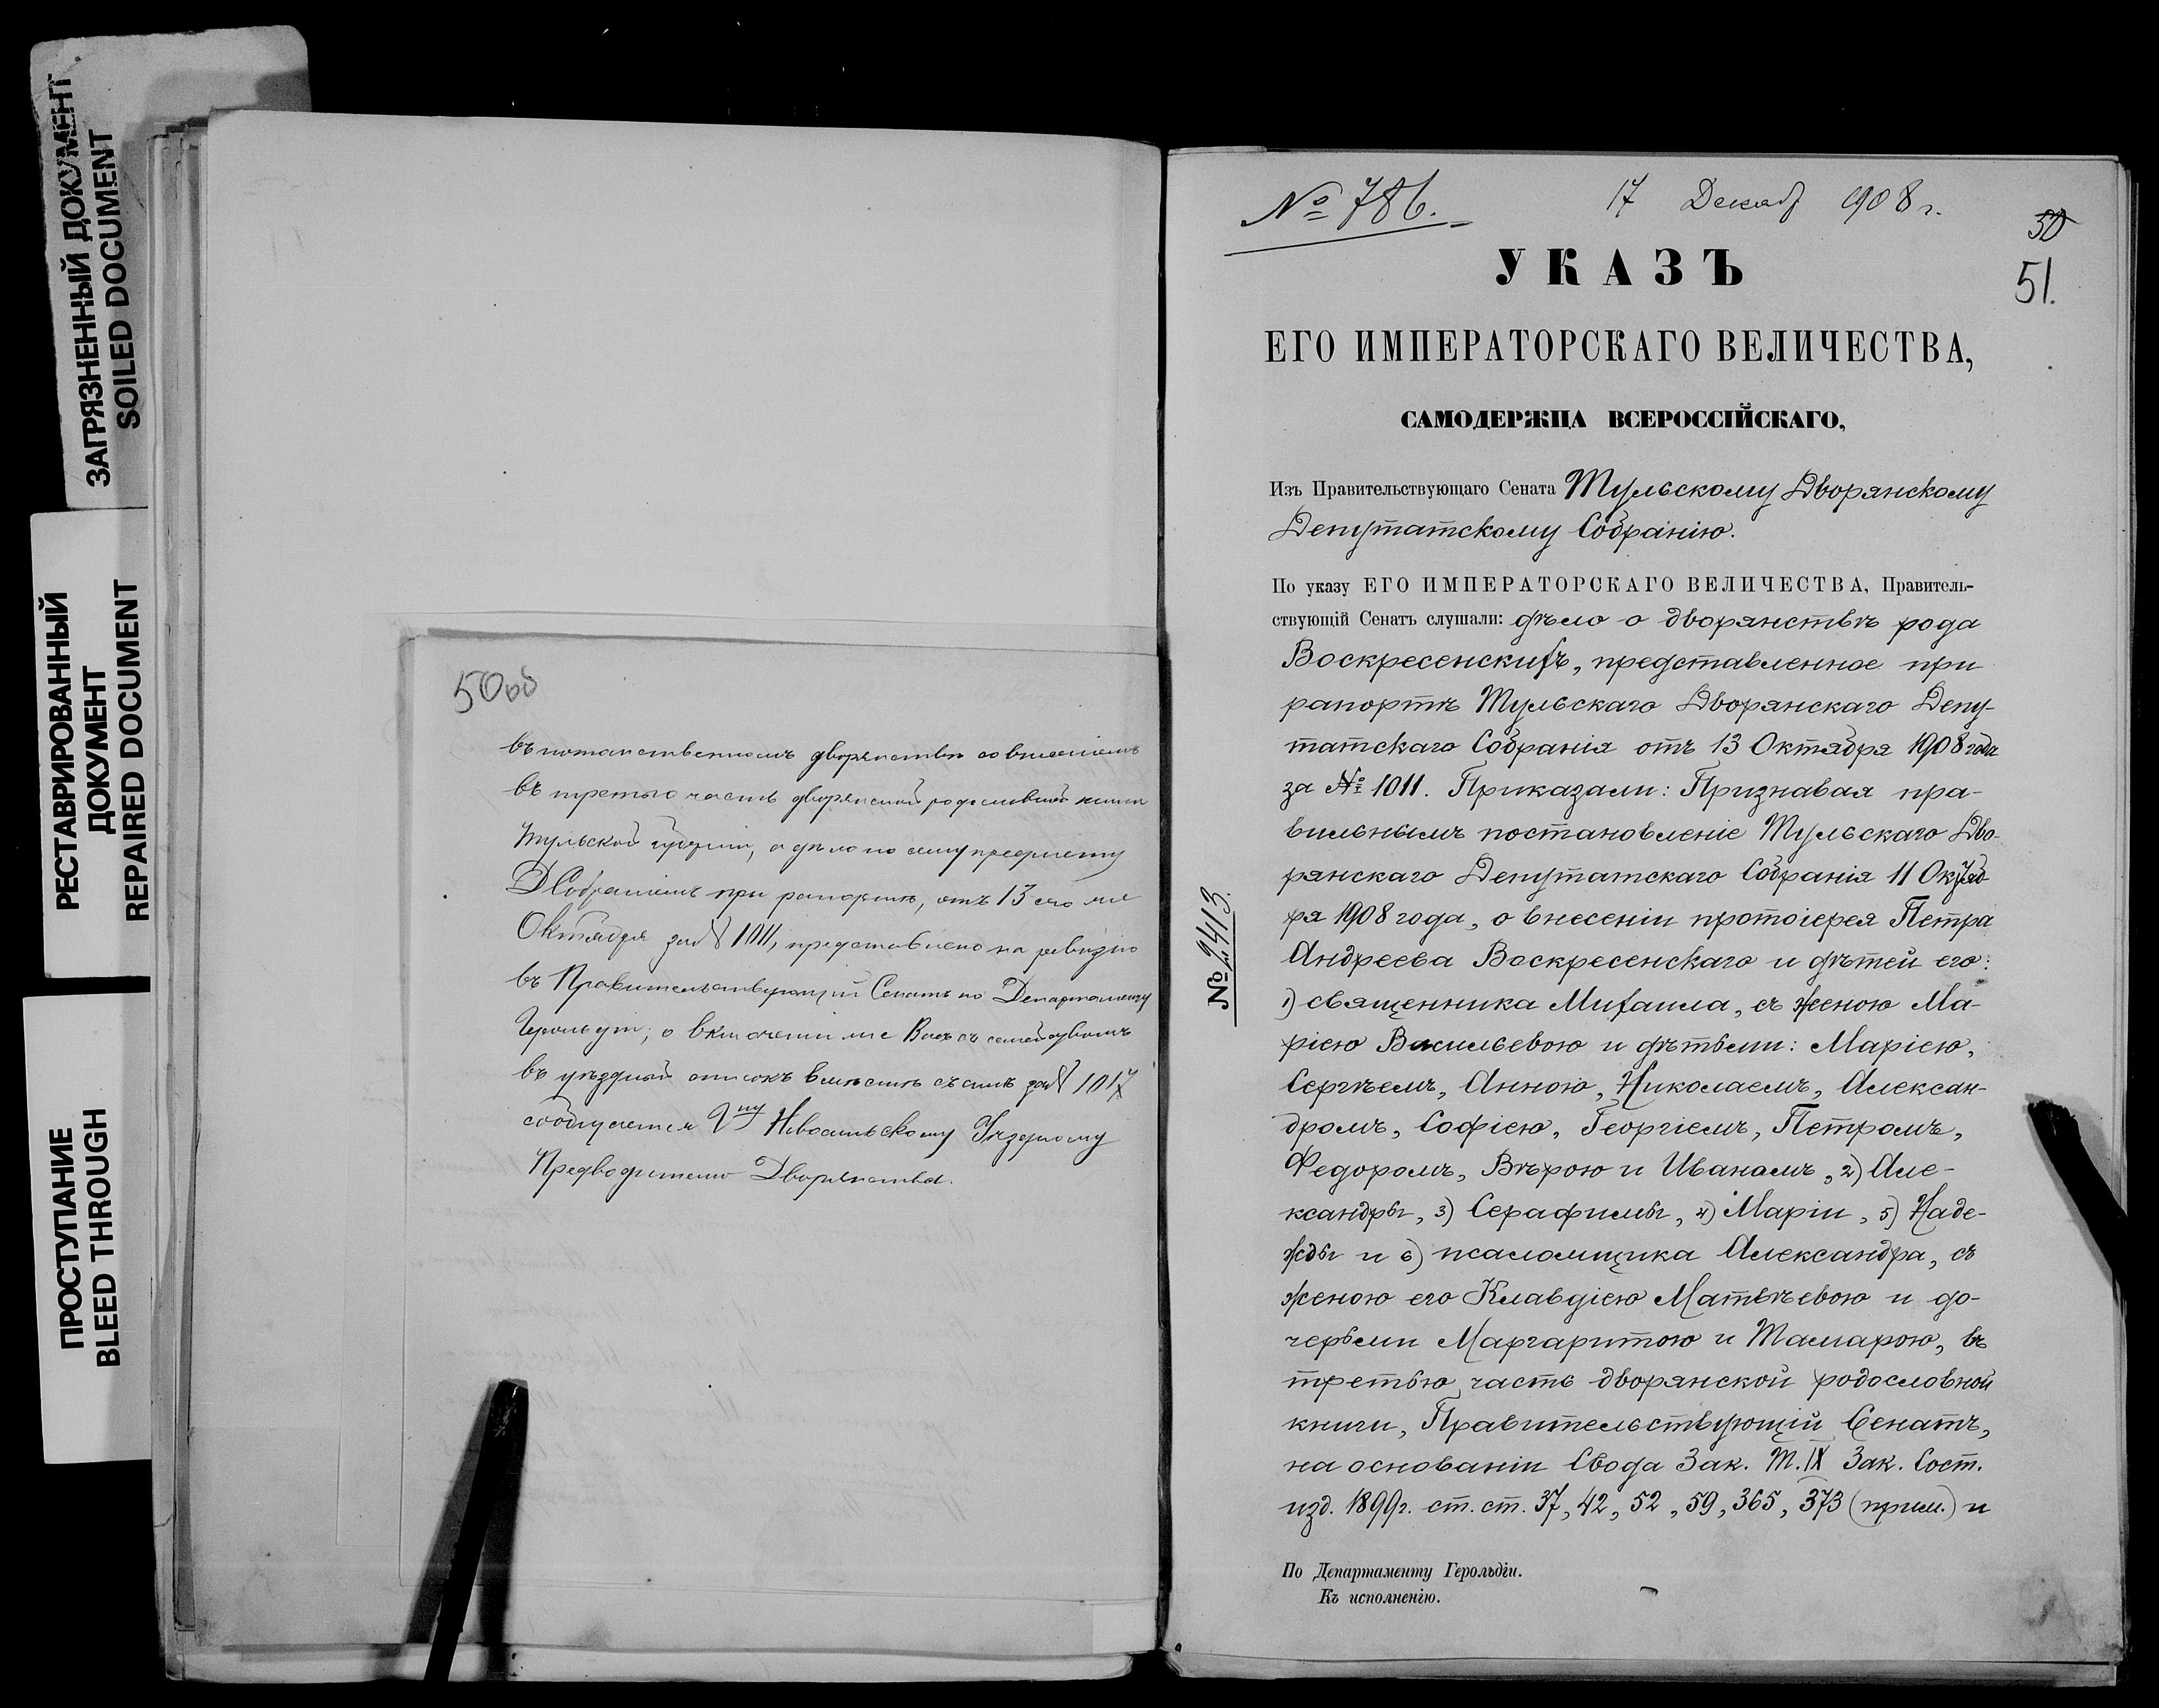 ЗАГРЯЗНЕННЫЙ ДОКУМЕНТ
SOILED DOCUMENT
РЕСТАВРИРОВАННЫЙ
ДОКУМЕНТ
REPAIRED DOCUMENT
ПРОСТУПАНИЕ
BLEED THROUGH
50об
въ потомственномъ дворянствѣ со внесеніемъ
въ третью часть дворянской родословной книги
Тульской губерніи, а дѣло по сему предмету
Д Собраніемъ при рапортѣ, отъ 13 сего же
Октября за № 1011, представлено на ревизію
въ Правительствующій Сенатъ по Департаменту
Герольдіи; о включеніи же Васъ съ семействомъ
въ уѣздный списокъ вмѣстѣ съ симъ за № 1017
сообщается Гну Новосильскому Уѣздному
Предводителю Дворянства.
№ 786.
17 Декаб 1908 г.
50
51.
УКАЗЪ
ЕГО ИМПЕРАТОРСКАГО ВЕЛИЧЕСТВА,
САМОДЕРЖЦА ВСЕРОССІЙСКАГО,
Изъ Правительствующаго Сената Тульскому Дворянскому
Депутатскому Собранію.
По указу ЕГО ИМПЕРАТОРСКАГО ВЕЛИЧЕСТВА, Правитель-
ствующій Сенатъ слушали: дѣло о дворянствѣ рода
Воскресенскихъ, представленное при
рапортѣ Тульскаго Дворянскаго Депу-
татскаго Собранія отъ 13 Октября 1908 года
за № 1011. Приказали: Признавая пра-
вильнымъ постановленіе Тульскаго Дво-
рянскаго Депутатскаго Собранія 11 Октяб-
ря 1908 года, о внесеніи протоіерея Петра
Андреева Воскресенскаго и дѣтей его:
1) священника Михаила, съ женою Ма-
ріею Васильевою и дѣтьми: Маріею,
Сергѣемъ, Анною, Николаемъ, Алексан-
дромъ, Софіею, Георгіемъ, Петромъ,
Федоромъ, Вѣрою и Иваномъ, 2) Але-
ксандры, 3) Серафимы, 4) Маріи, 5) Наде-
жды и 6) псаломщика Александра, съ
женою его Клавдіею Матвѣевою и до-
черьми Маргаритою и Тамарою, въ
третью часть дворянской родословной
книги, Правительствующій Сенатъ,
на основаніи Свода Зак. Т. IX Зак. Сост.
изд. 1899 г. ст. ст. 37, 42, 52, 59, 365, 373 (прим.) и
По Департаменту Герольдіи.
Къ исполненію.
№ 2413.